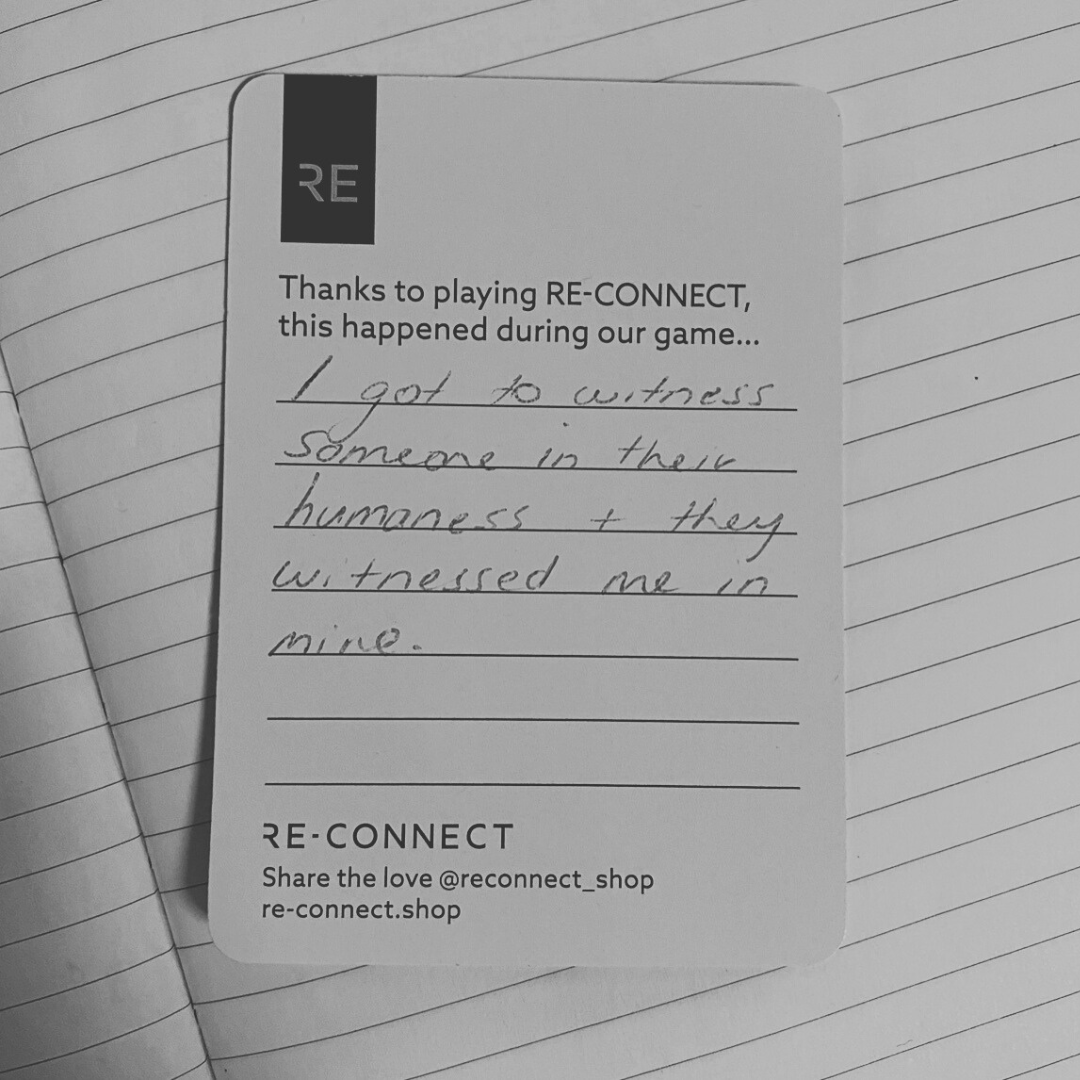 RE
Thanks to playing RE-CONNECT,
this happened during our game...
I got to witness
someone in their
humaness + they
witnessed me in
mine.
RE-CONNECT
Share the love @reconnect_shop
re-connect.shop